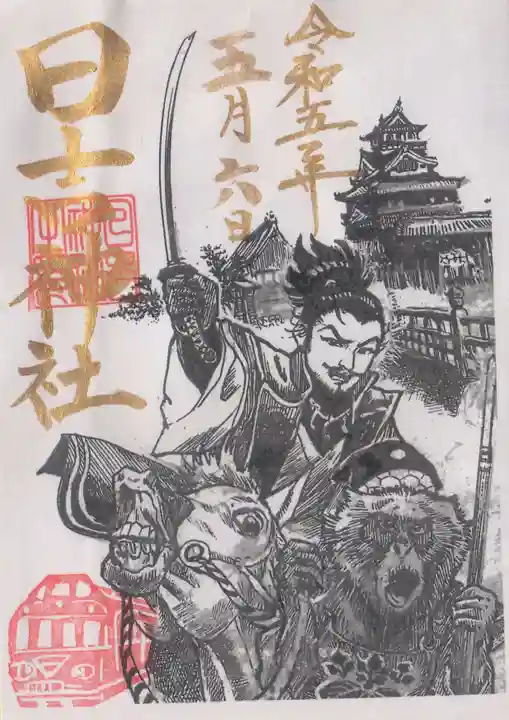 令和五年
五月六日
日吉神社